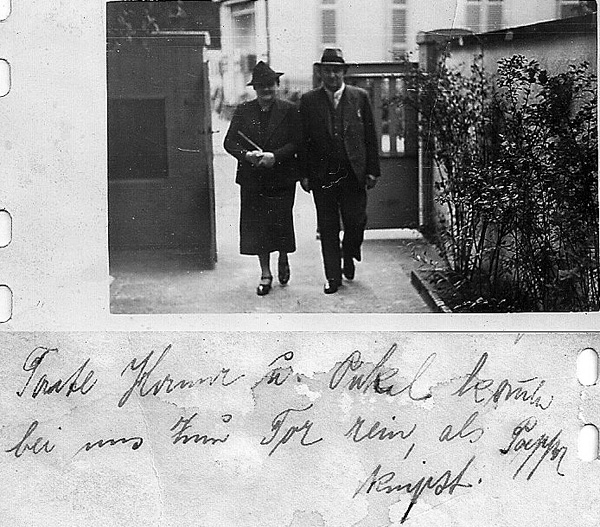 Tante Hanna u. Onkel komm
bei uns zum Tor rein, als Pappa
knipst.